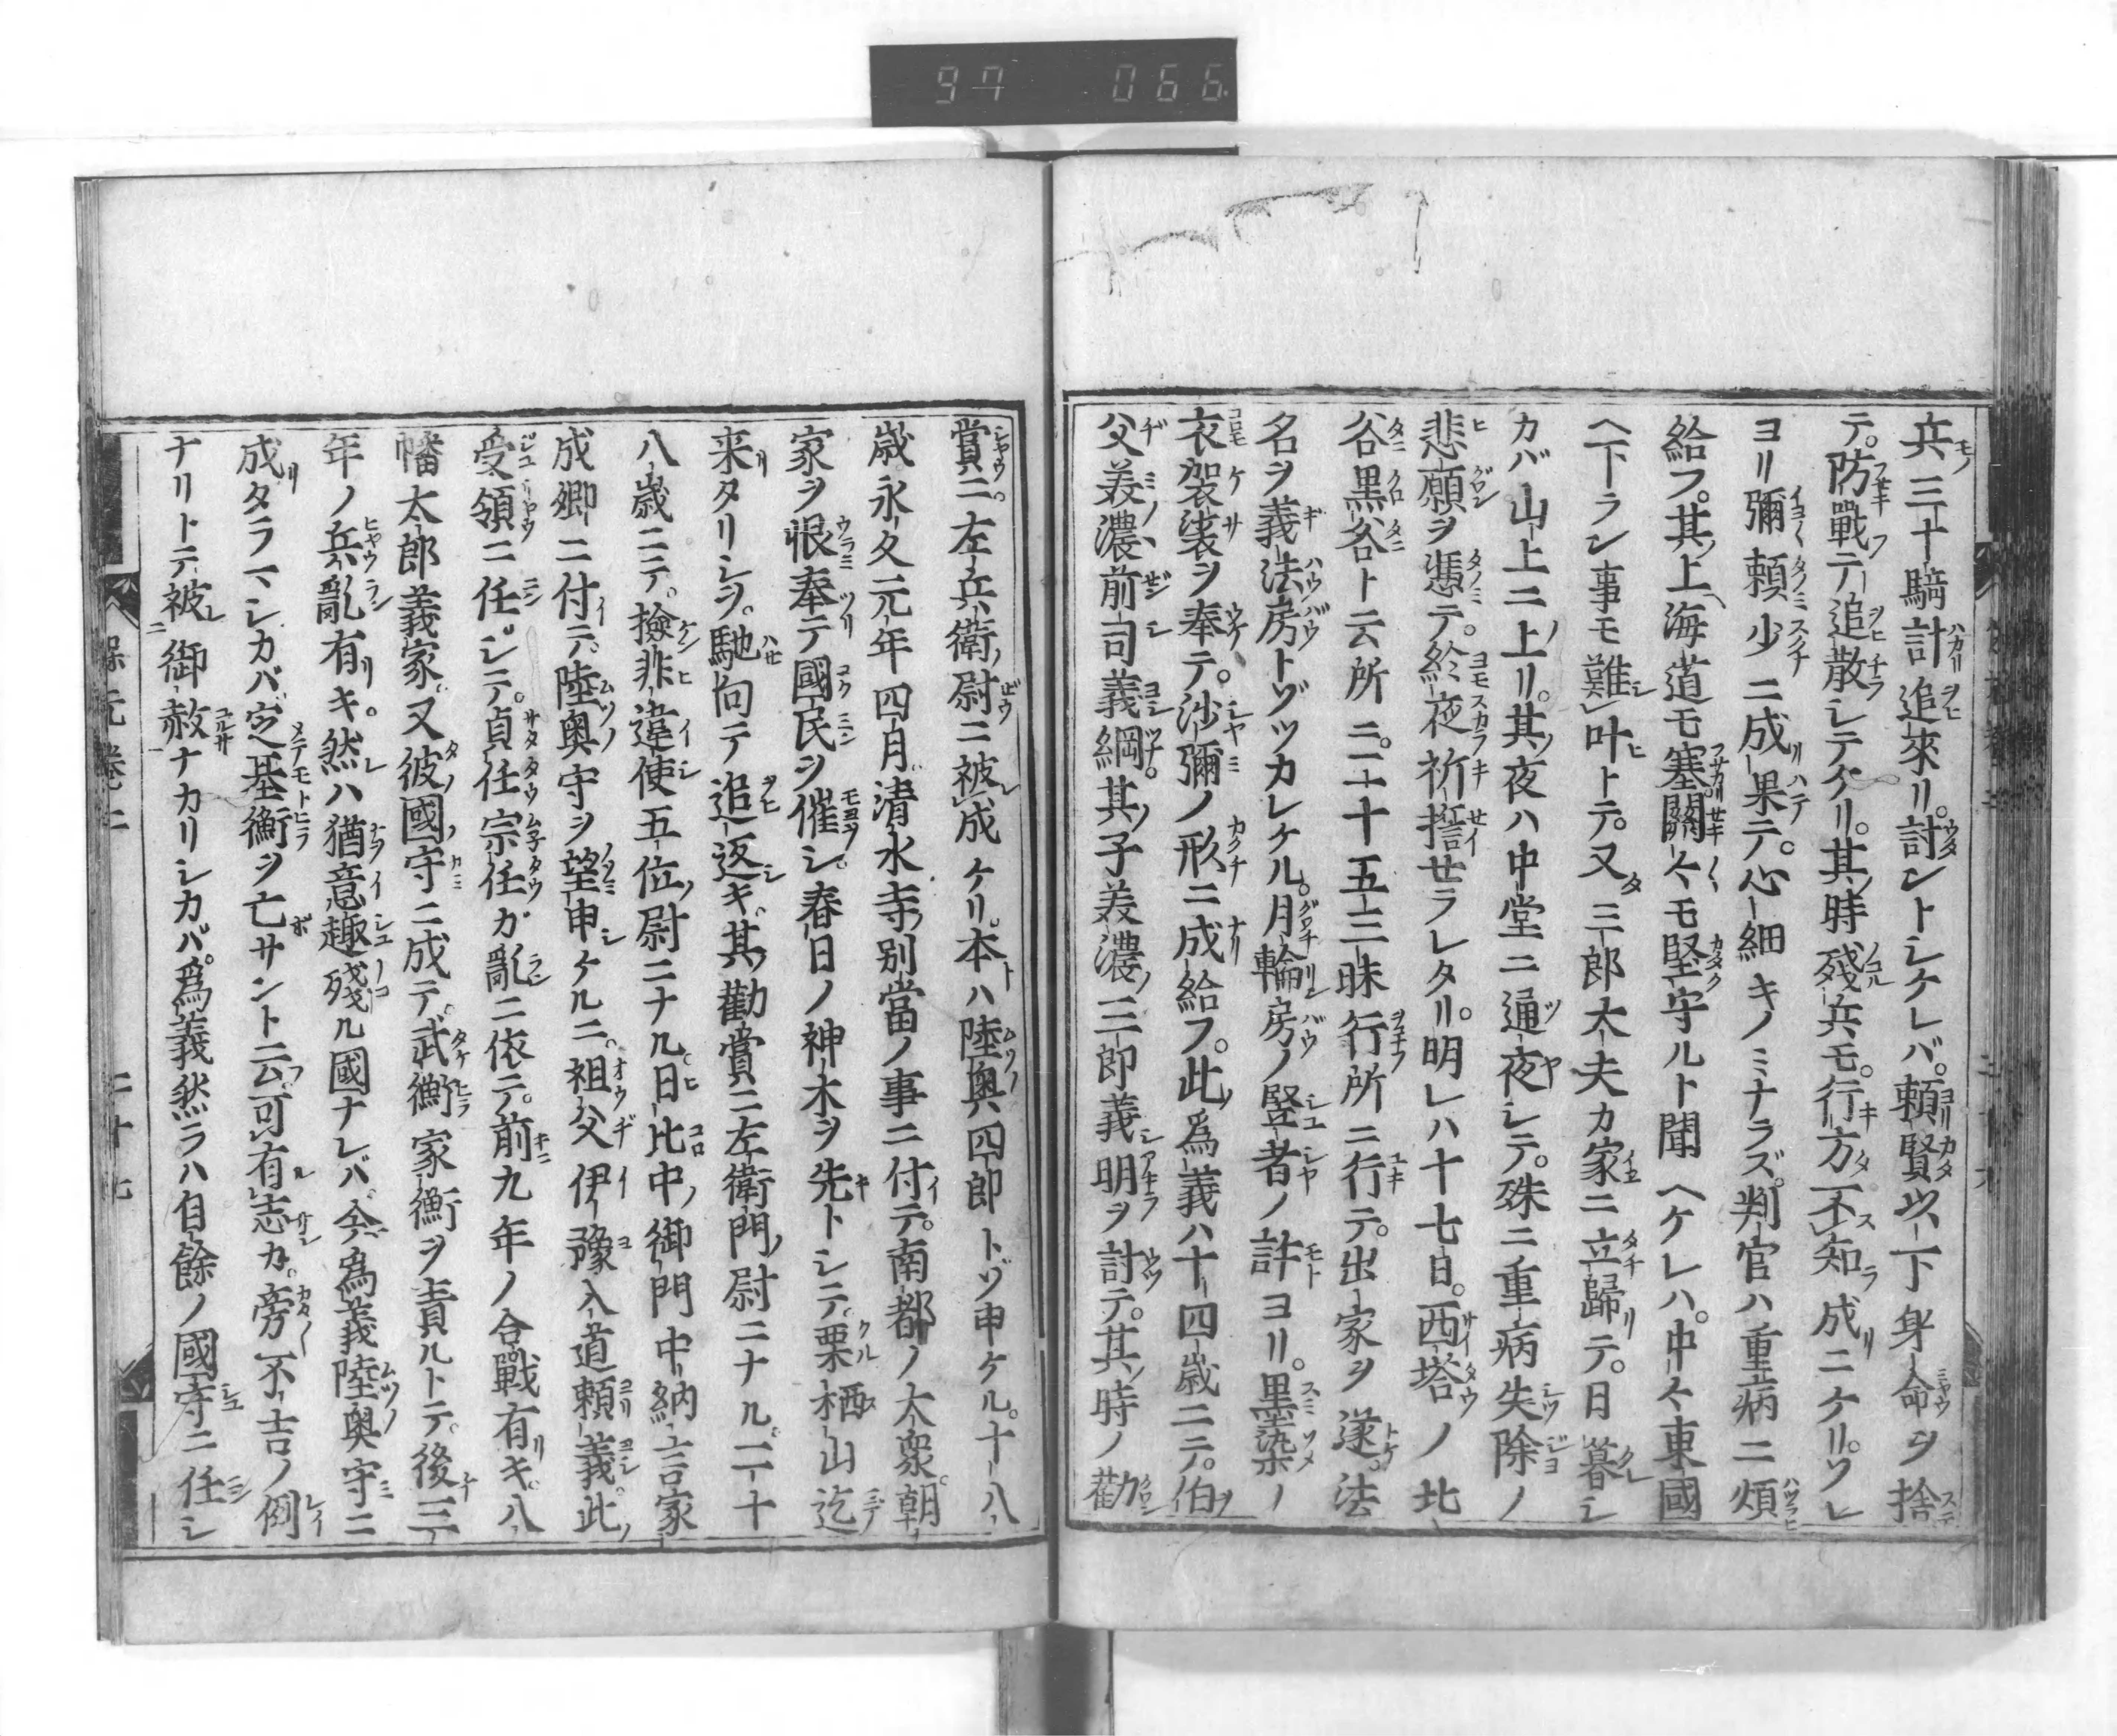 97 066
兵三十騎計追來リ。討ントシケレバ。頼賢以下身命ヲ捨
テ。防戰テ追散シテケリ。其時殘兵モ。行方不知成ニケリ。ソレ
ヨリ彌頼少ニ成果テ。心細キノミナラズ。判官ハ重病ニ煩
給フ。其上海道モ塞關々モ堅守ルト聞ヘケレハ。中々東國
ヘ下ラン事モ難叶トテ。又三郎大夫カ家ニ立歸テ。日暮シ
カバ山上ニ上リ。其夜ハ中堂ニ通夜シテ。殊ニ重病失除ノ
悲願ヲ憑テ。終夜祈誓セラレタリ。明レハ十七日。西塔ノ北
谷黒谷ト云所ニ。二十五三昧行所ニ行テ。出家ヲ遂。法
名ヲ義法房トゾツカレケル。月輪房ノ竪者ノ許ヨリ。墨染ノ
衣袈裟ヲ奉テ。沙彌ノ形ニ成給フ。此爲義ハ十四歳ニテ。伯
父美濃前司義綱。其子美濃三郎義明ヲ討テ。其時ノ勸
賞ニ。左兵衛尉ニ被成ケリ。本ハ陸奥四郎トゾ申ケル。十八
歳永久元年四月清水寺別當ノ事ニ付テ。南都ノ大衆。朝
家ヲ恨奉テ國民ヲ催シ。春日ノ神木ヲ先トシテ。栗栖山迄
来タリシヲ。馳向テ追返キ。其勸賞ニ左衛門尉ニナル。二十
八歳ニテ。撿非違使五位尉ニナル。日比中御門中納言家
成卿ニ付テ。陸奥守ヲ望申ケルニ。祖父伊豫入道頼義。此
受領ニ任シテ。貞任宗任カ亂ニ依テ。前九年ノ合戰有キ。八
幡太郎義家。又彼國守ニ成テ。武衡家衡ヲ責ルトテ。後三
年ノ兵亂有リキ。然ハ猶意趣殘ル國ナレバ。今爲義陸奥守ニ
成タラマシカバ。定基衡ヲ亡サント云。可有志カ。旁不吉ノ例
ナリトテ被御赦ナカリシカバ。爲義然ラハ自餘ノ國守ニ任シ
保元巻二
二十七